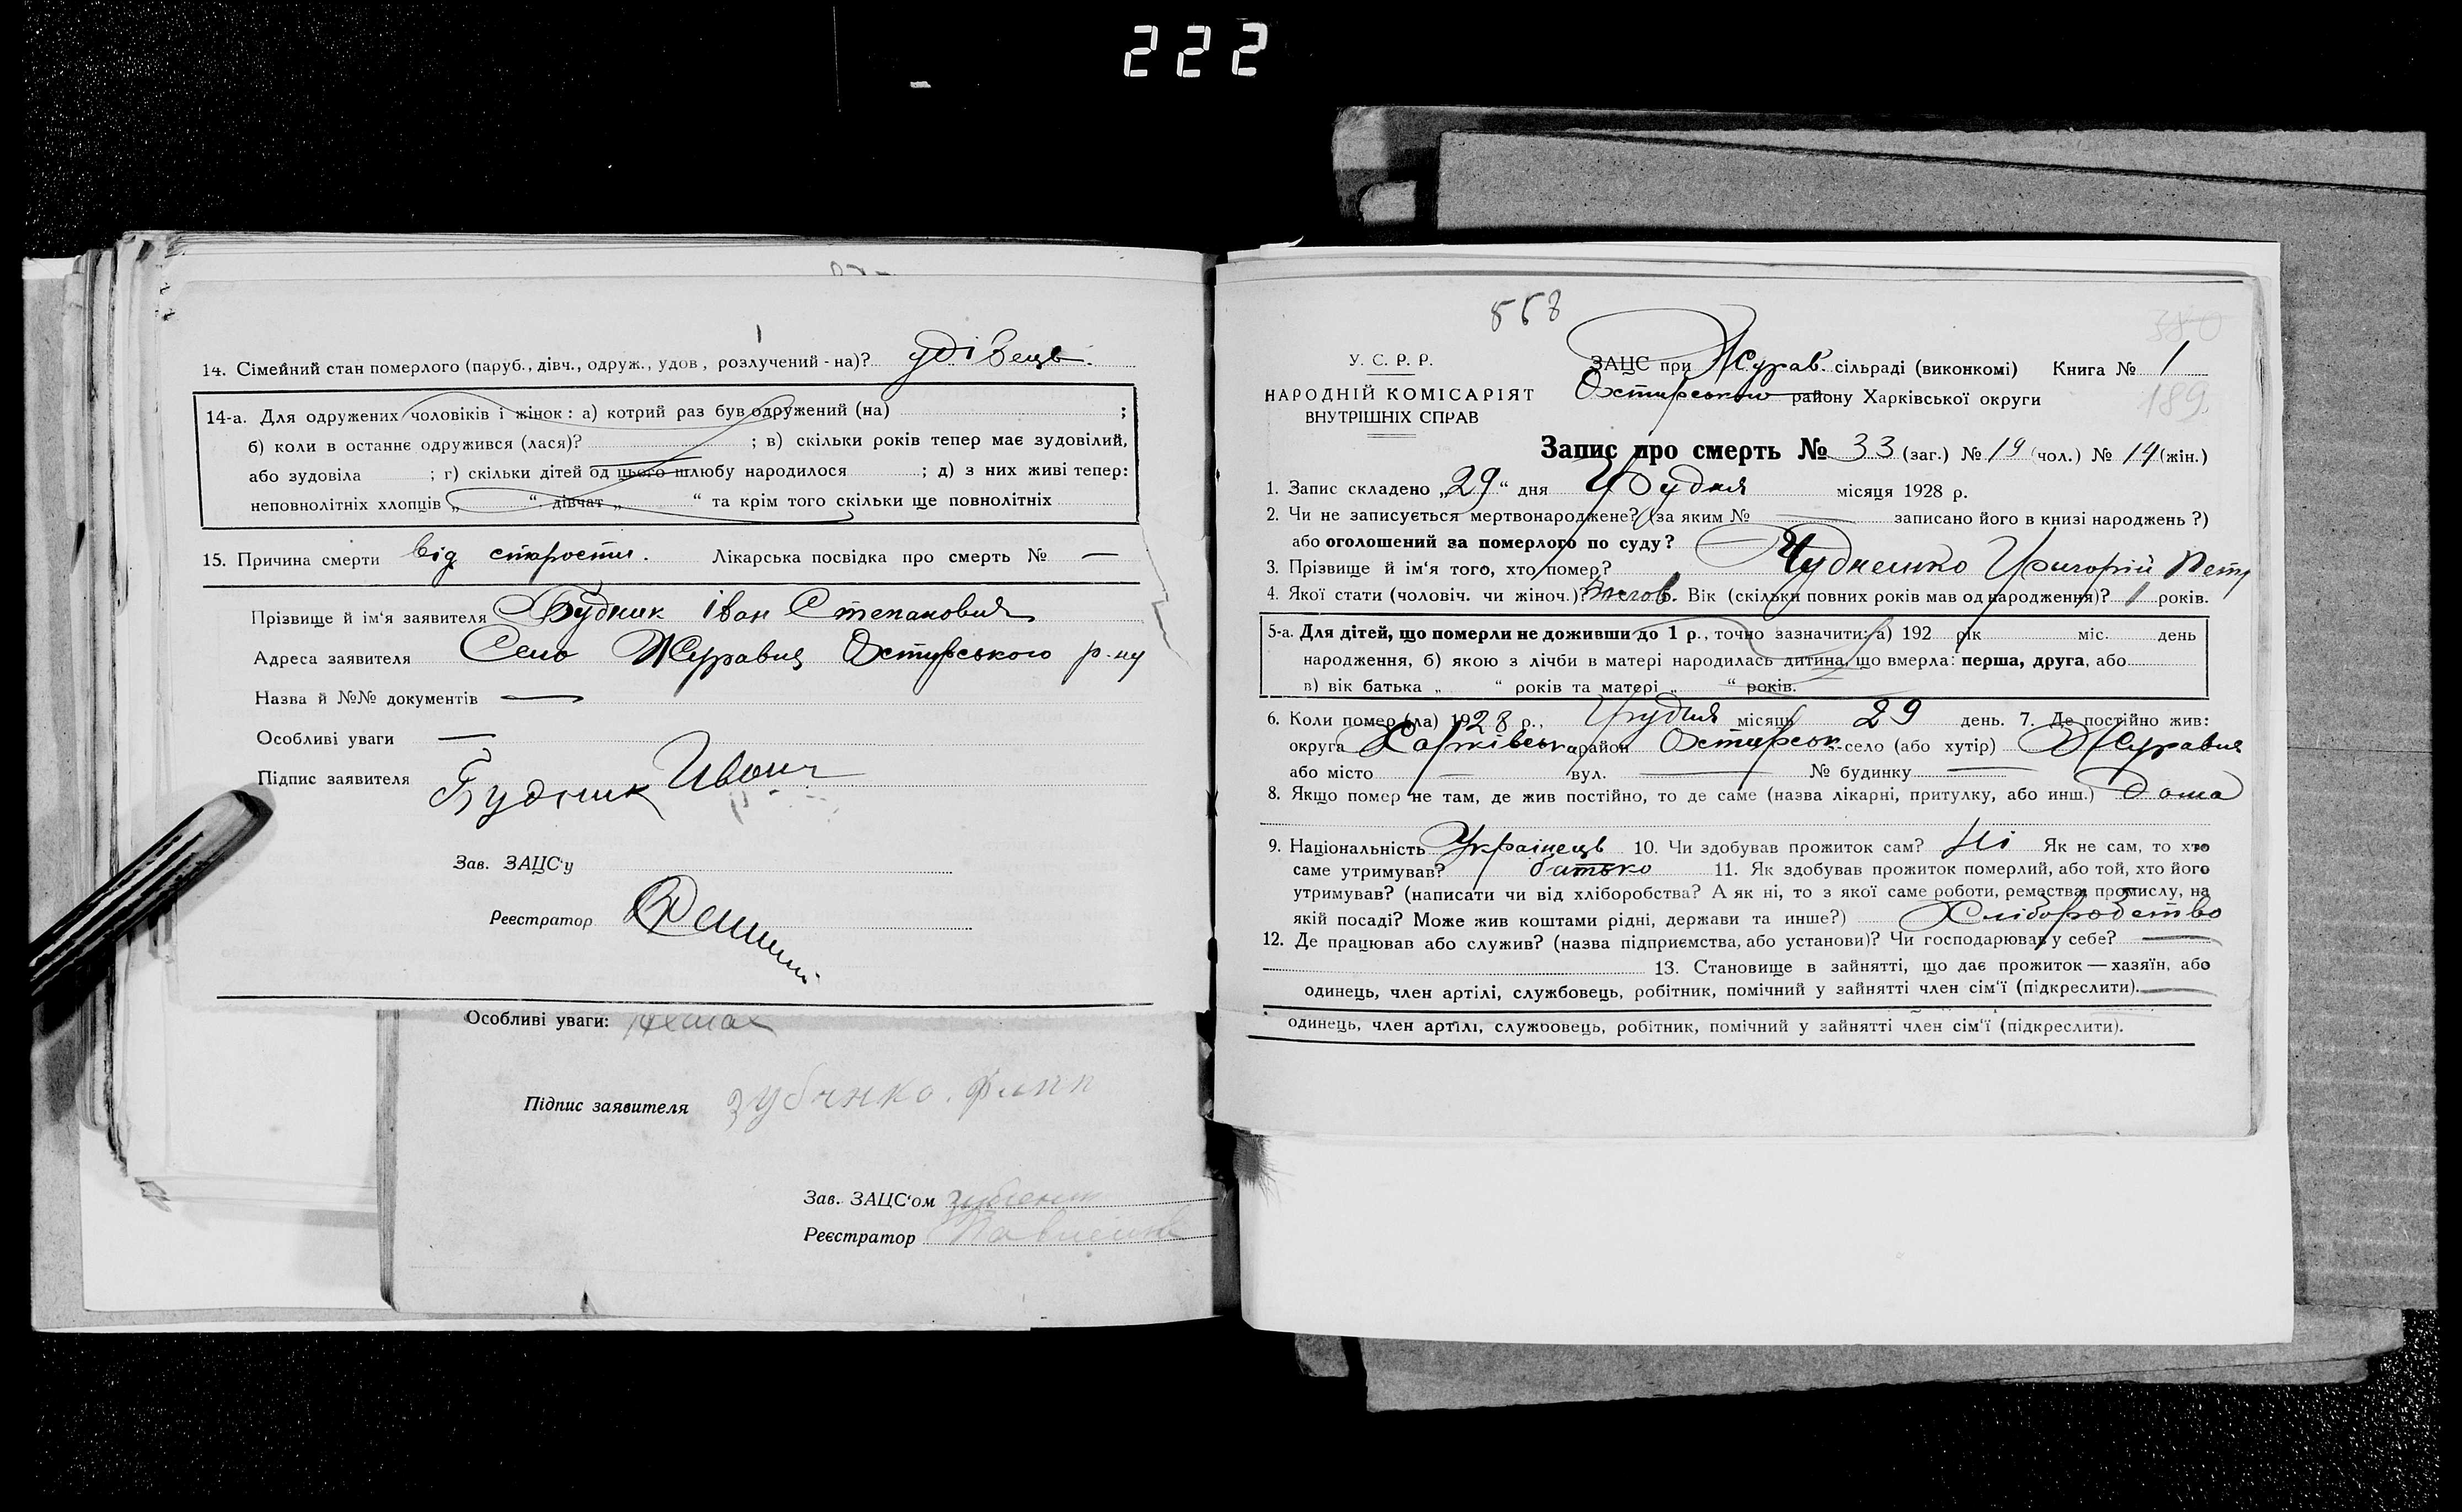 222
14. Сімейний стан померлого (паруб., дівч., одруж., удов, розлучений - на)? удівець.
14-а. Для одружених чоловіків і жінок: а) котрий раз був одружений (на) ;
б) коли в останнє одружився (лася)? ; в) скільки років тепер має зудовілий,
або зудовіла ; г) скільки дітей од цього шлюбу народилося ; д) з них живі тепер:
неповнолітніх хлопців „ “ дівчат „ “ та крім того скільки ще повнолітніх
15. Причина смерти від старости. Лікарська посвідка про смерть № —
Прізвище й ім'я заявителя Будник Іван Степанович
Адреса заявителя Село Журавці Охтирського р-ну
Назва й №№ документів —
Особливі уваги —
Підпис заявителя Будник Иван
Зав. ЗАЦС'у
Реєстратор
Особливі уваги: немає
Підпис заявителя
Зав. ЗАЦС'ом
Реєстратор
У. С. Р. Р.
НАРОДНІЙ КОМІСАРІЯТ
ВНУТРІШНІХ СПРАВ
380
ЗАЦС при Журав. сільраді (виконкомі) Книга № 1
Охтирського району Харківської округи
189
Запис про смерть № 33 (заг.) № 19 (чол.) № 14 (жін.)
1. Запис складено „29“ дня Грудня місяця 1928 р.
2. Чи не записується мертвонароджене? (за яким № — записано його в книзі народжень ?)
або оголошений за померлого по суду? —
3. Прізвище й ім'я того, хто помер? Чудненко Григорій Петр
4. Якої стати (чоловіч. чи жіноч.)? Вік (скільки повних років мав од народження)? 1 років.
5-а. Для дітей, що померли не доживши до 1 р., точно зазначити: а) 192 рік міс. день
народження, б) якою з лічби в матері народилась дитина, що вмерла: перша, друга, або
в) вік батька „ “ років та матері „ “ років.
6. Коли помер (ла) 1928 р., Грудня місяць 29 день. 7. Де постійно жив:
округа Харківська район Охтирськ. село (або хутір) Журавка
або місто — вул. — № будинку —
8. Якщо помер не там, де жив постійно, то де саме (назва лікарні, притулку, або инш.) дома
9. Національність Українець 10. Чи здобував прожиток сам? Ні Як не сам, то хто
саме утримував? батько 11. Як здобував прожиток померлий, або той, хто його
утримував? (написати чи від хліборобства? А як ні, то з якої саме роботи, ремества, промислу, на
якій посаді? Може жив коштами рідні, держави та инше?) Хліборобство
12. Де працював або служив? (назва підприємства, або установи)? Чи господарював у себе? —
13. Становище в зайнятті, що дає прожиток — хазяїн, або
одинець, член артілі, службовець, робітник, помічний у зайнятті член сім'ї (підкреслити). —
одинець, член артілі, службовець, робітник, помічний у зайнятті член сім'ї (підкреслити).